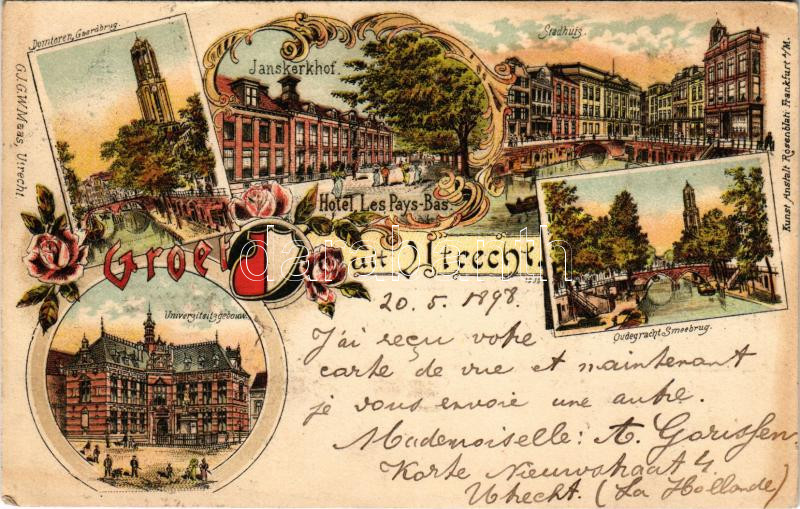 Domtoren, Gaardbrug.
G.J.G.W. Maas, Utrecht.
Janskerkhof.
Hotel Les Pays-Bas.
Stadhuis.
Kunst-Anstalt Rosenblatt Frankfurt a/M.
Oudegracht Smeebrug.
Groet uit Utrecht.
Universiteitsgebouw.
20.5.1898.
J'ai reçu votre
carte de vue et maintenant
je vous envoie une autre.
Mademoiselle: A. Gorissen
Korte Nieuwstraat 4
Utrecht. (La Hollande)
darabanth.com